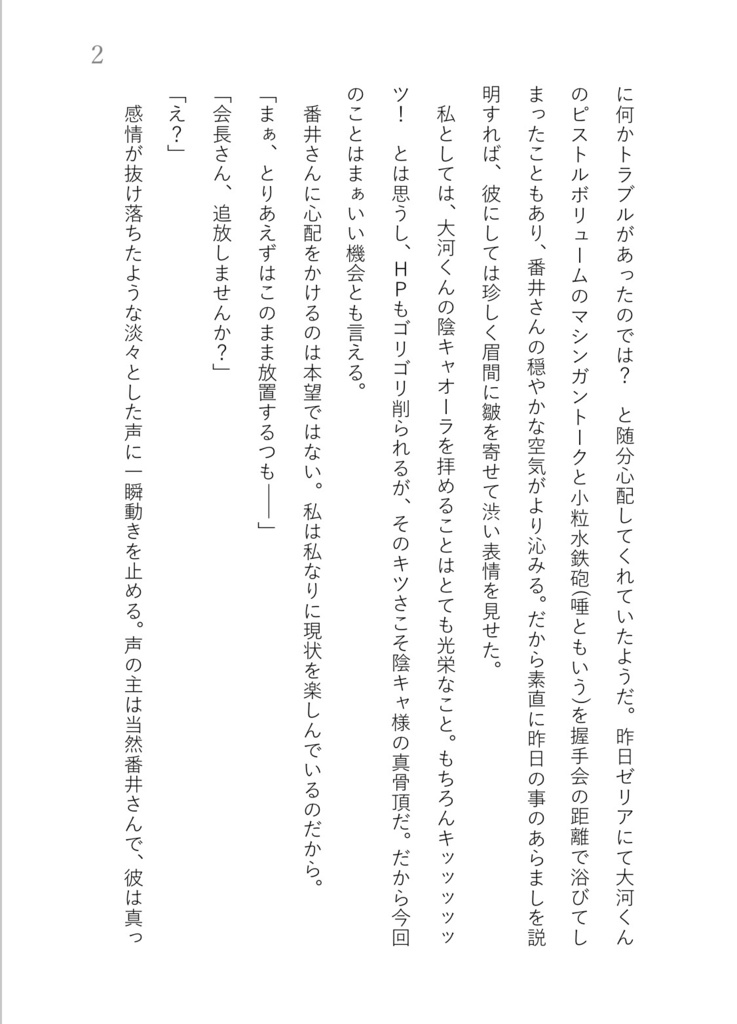 に何かトラブルがあったのでは？　と随分心配してくれていたようだ。昨日ゼリアにて大河くん
のピストルボリュームのマシンガントークと小粒水鉄砲(唾ともいう)を握手会の距離で浴びてし
まったこともあり、番井さんの穏やかな空気がより沁みる。だから素直に昨日の事のあらましを説
明すれば、彼にしては珍しく眉間に皺を寄せて渋い表情を見せた。
　私としては、大河くんの陰キャオーラを拝めることはとても光栄なこと。もちろんキッッッッッ
ツ！　とは思うし、ＨＰもゴリゴリ削られるが、そのキツさこそ陰キャ様の真骨頂だ。だから今回
のことはまぁいい機会とも言える。
　番井さんに心配をかけるのは本望ではない。私は私なりに現状を楽しんでいるのだから。
「まぁ、とりあえずはこのまま放置するつも――」
「会長さん、追放しませんか？」
「え？」
　感情が抜け落ちたような淡々とした声に一瞬動きを止める。声の主は当然番井さんで、彼は真っ
2